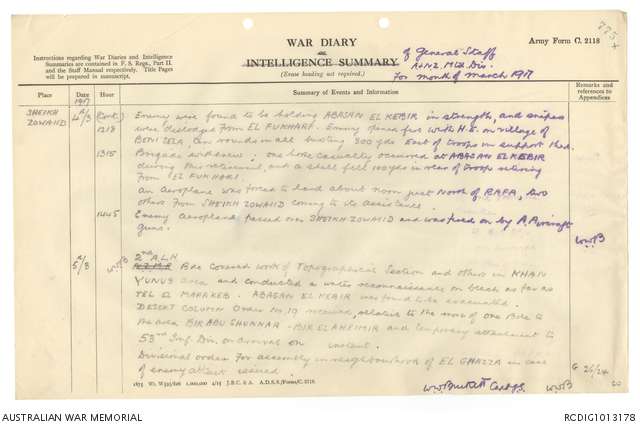 WAR DIARY
or
INTELLIGENCE SUMMARY
(Erase heading not required.)
of General Staff
A+NZ. Mtd. Div.
For month of March 1917
Army Form C. 2118
Instructions regarding War Diaries and Intelligence
Summaries are contained in F. S. Regs., Part II.
and the Staff Manual respectively. Title Pages
will be prepared in manuscript.
Place
Date
1917
Hour
Summary of Events and Information
Remarks and
references to
Appendices
SHEIKH
ZOWAID
4/3
(Cont.)
Enemy were found to be holding ABASAN EL KEBIR in strength, and snipers
were dislodged from EL FUKHARI. Enemy opened fire with H.E. on village of
1218
BENI SELA, rounds in all bursting 800 yds East of troops in support there.
1315
Brigade withdrew; one horse casualty occurred at ABASAN EL KEBIR
during this withdrawal, and a shell fell 100 yds in rear of troops retiring
from EL FUKHARI.
An aeroplane was forced to land about noon just North of RAFA, two
others from SHEIKH ZOWAID coming to its assistance.
1445
Enemy Aeroplane passed over SHEIKH ZOWAID and was fired on by A. Aircraft
guns.
WWB
5/3
WWB
2nd A.L.H.
Bde covered work of Topographical Section and others in KHAN
YUNUS area and conducted a water reconnaissance on beach as far as
TEL EL MARAKEB. ABASAN EL KEBIR was found to be evacuated.
DESERT COLUMN Order No. 19 received, relative to the move of one Bde to
the area BIR ABU SHUNNAR - BIR EL AHEIMIR and temporary attachment to
53rd Inf. Div. on arrival on instant.
Divisional order for assembly in neighbourhood of EL GHAZZA in case
of enemy attack issued.
WWB
G 26/24
20
1875 Wt. W593/826 1,000,000 4/15 J.B.C. & A. A.D.S.S./Forms/C. 2118.
AUSTRALIAN WAR MEMORIAL
RCDIG1013178